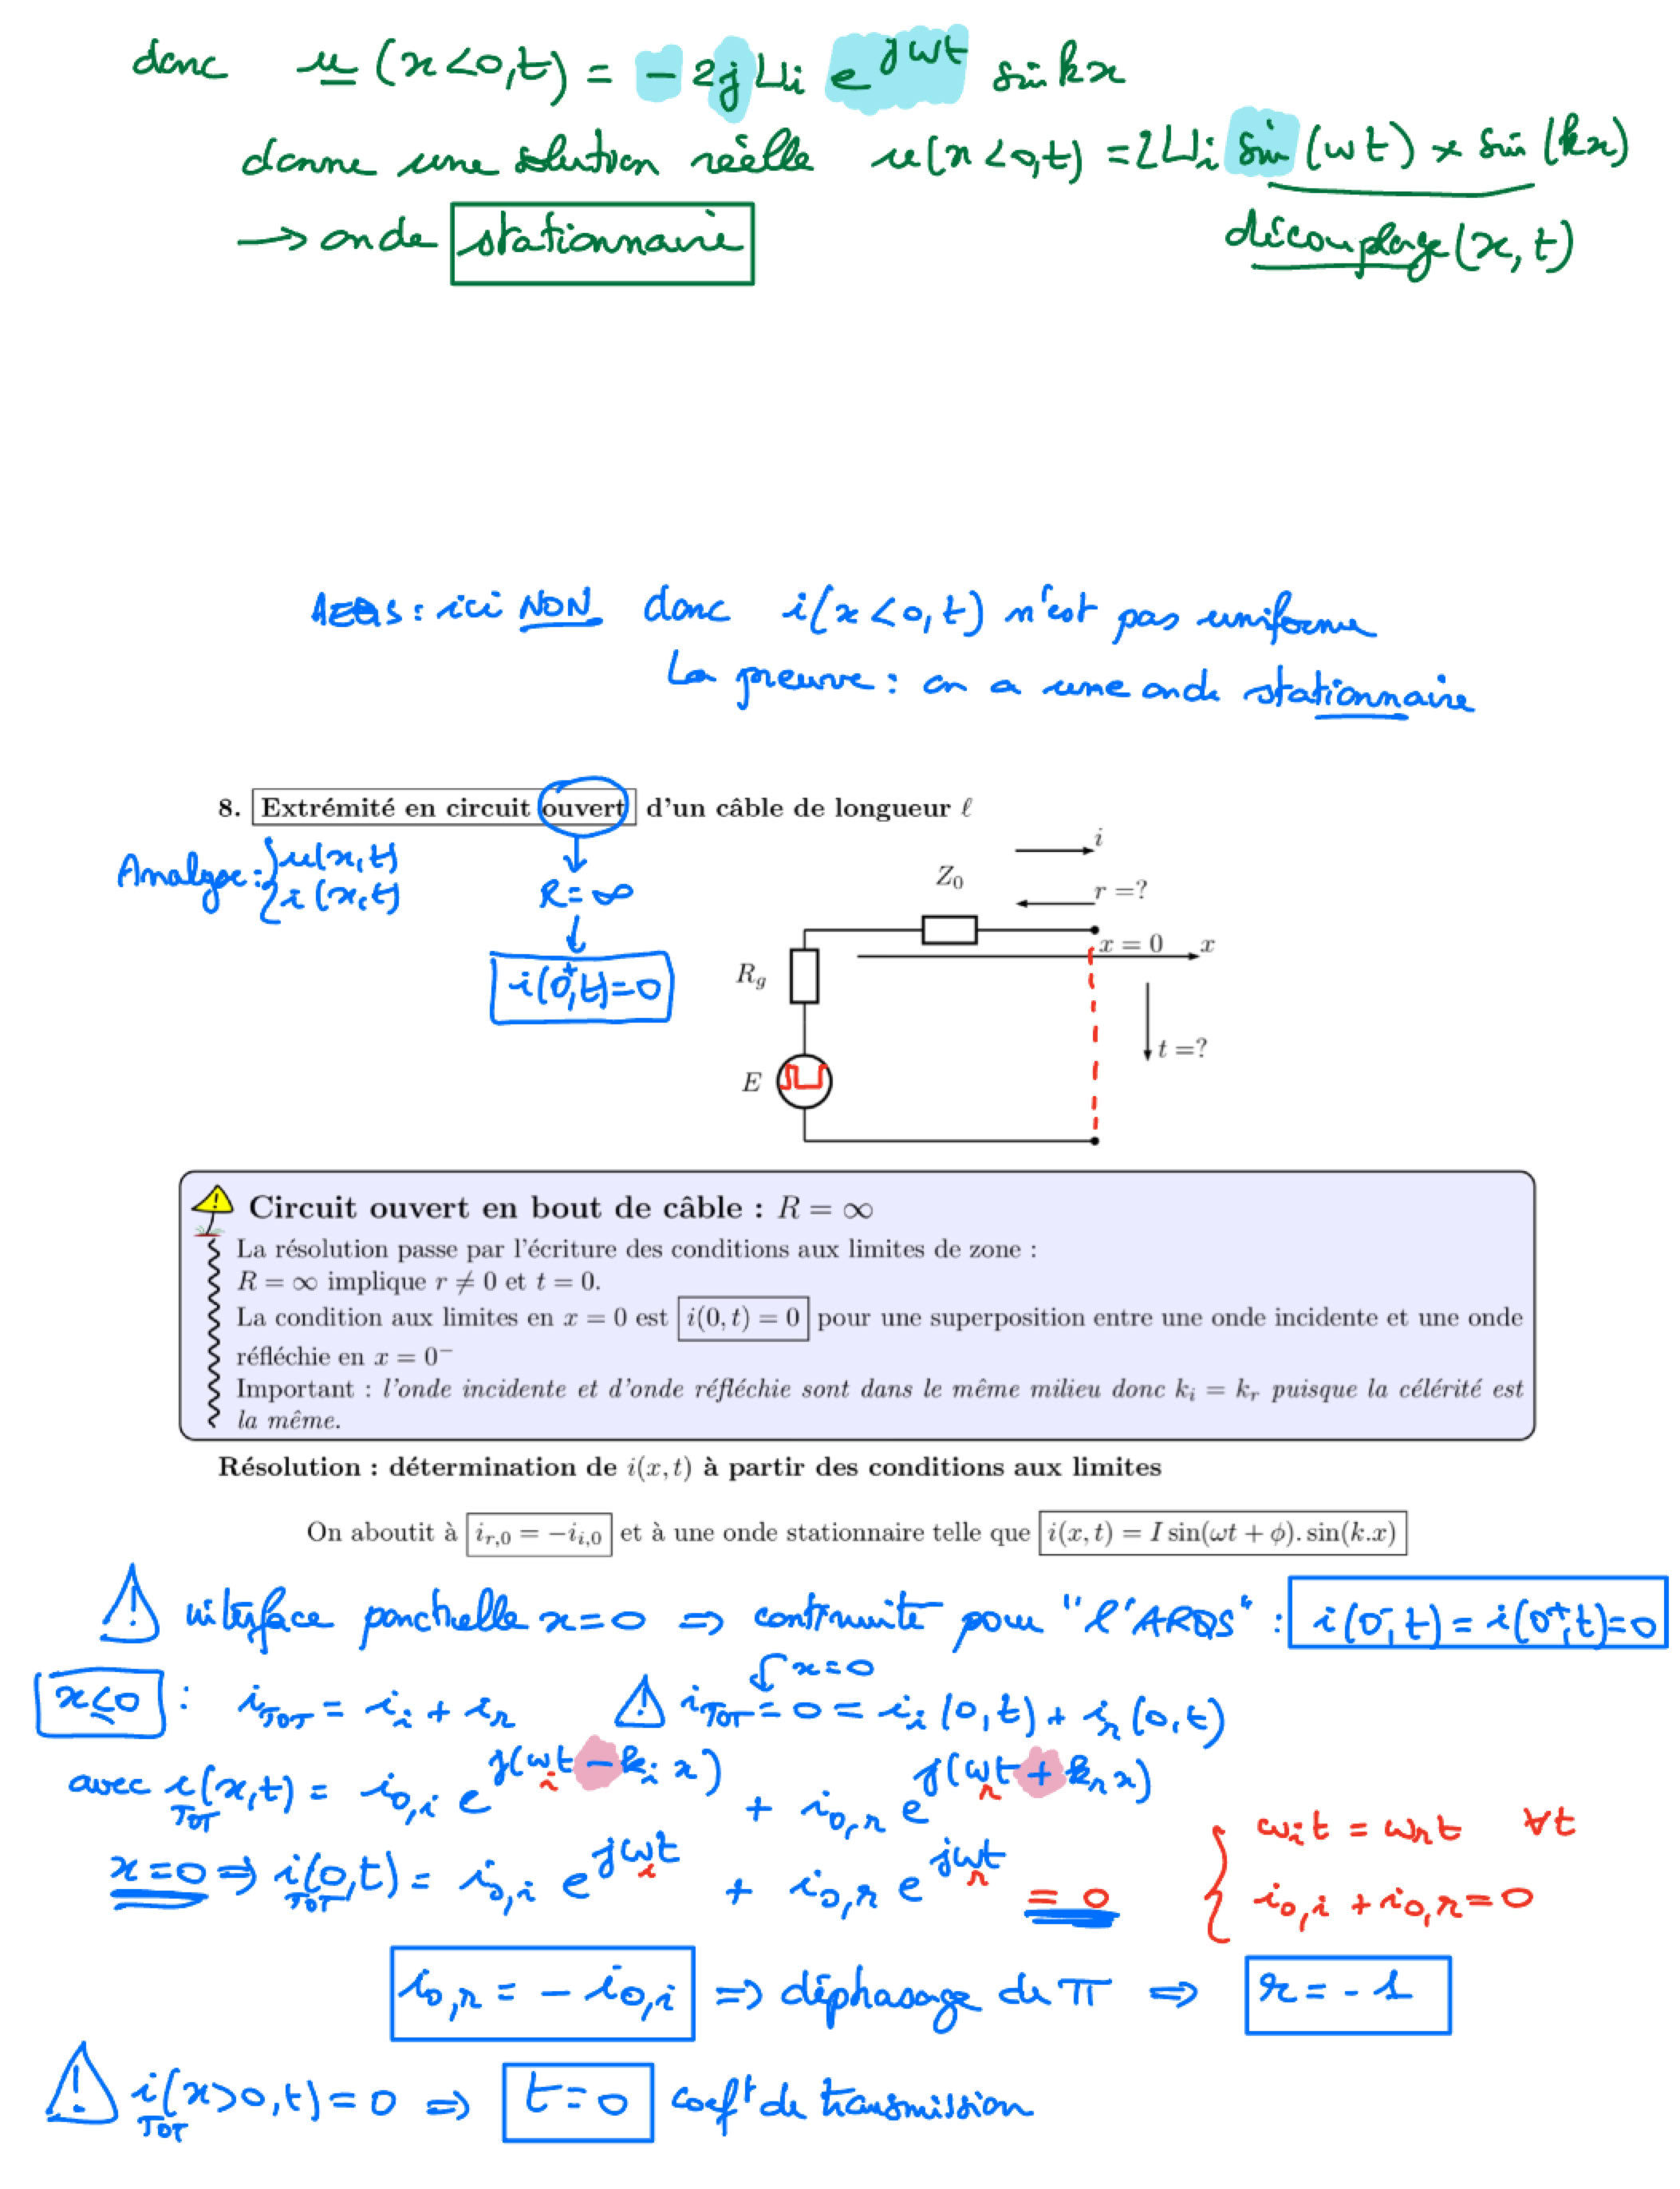 donc u (x<0,t) = -2j Ui e^jωt sin kx
donne une solution réelle u(x<0,t) = 2Ui sin (ωt) × sin (kx)
→ onde stationnaire
découplage (x,t)
AEQS : ici NON donc i(x<0,t) n'est pas uniforme
La preuve : on a une onde stationnaire
8. Extrémité en circuit ouvert d'un câble de longueur ℓ
Analyse : { u(x,t)
i(x,t)
R = ∞
i(0⁺,t)=0
i
Z₀
r =?
x = 0
x
R_g
t =?
E
Circuit ouvert en bout de câble : R = ∞
La résolution passe par l'écriture des conditions aux limites de zone :
R = ∞ implique r ≠ 0 et t = 0.
La condition aux limites en x = 0 est i(0, t) = 0 pour une superposition entre une onde incidente et une onde
réfléchie en x = 0⁻
Important : l'onde incidente et d'onde réfléchie sont dans le même milieu donc k_i = k_r puisque la célérité est
la même.
Résolution : détermination de i(x, t) à partir des conditions aux limites
On aboutit à i_r,0 = −i_i,0 et à une onde stationnaire telle que i(x, t) = I sin(ωt + ϕ). sin(k.x)
⚠ interface ponctuelle x=0 ⇒ continuité pour "l'ARQS" : i(0⁻,t) = i(0⁺,t)=0
x≤0 : i_TOT = i_i + i_r
↓ x=0
⚠ i_TOT = 0 = i_i (0,t) + i_r (0,t)
avec i_TOT(x,t) = i_0,i e^j(ω_i t - k_i x) + i_0,r e^j(ω_r t + k_r x)
x=0 ⇒ i_TOT(0,t) = i_0,i e^jω_i t + i_0,r e^jω_r t = 0
{ ω_i t = ω_r t ∀t
i_0,i + i_0,r = 0
i_0,r = - i_0,i ⇒ déphasage de π ⇒ r = -1
⚠ i_TOT(x>0,t) = 0 ⇒ t=0 coefᵗ de transmission